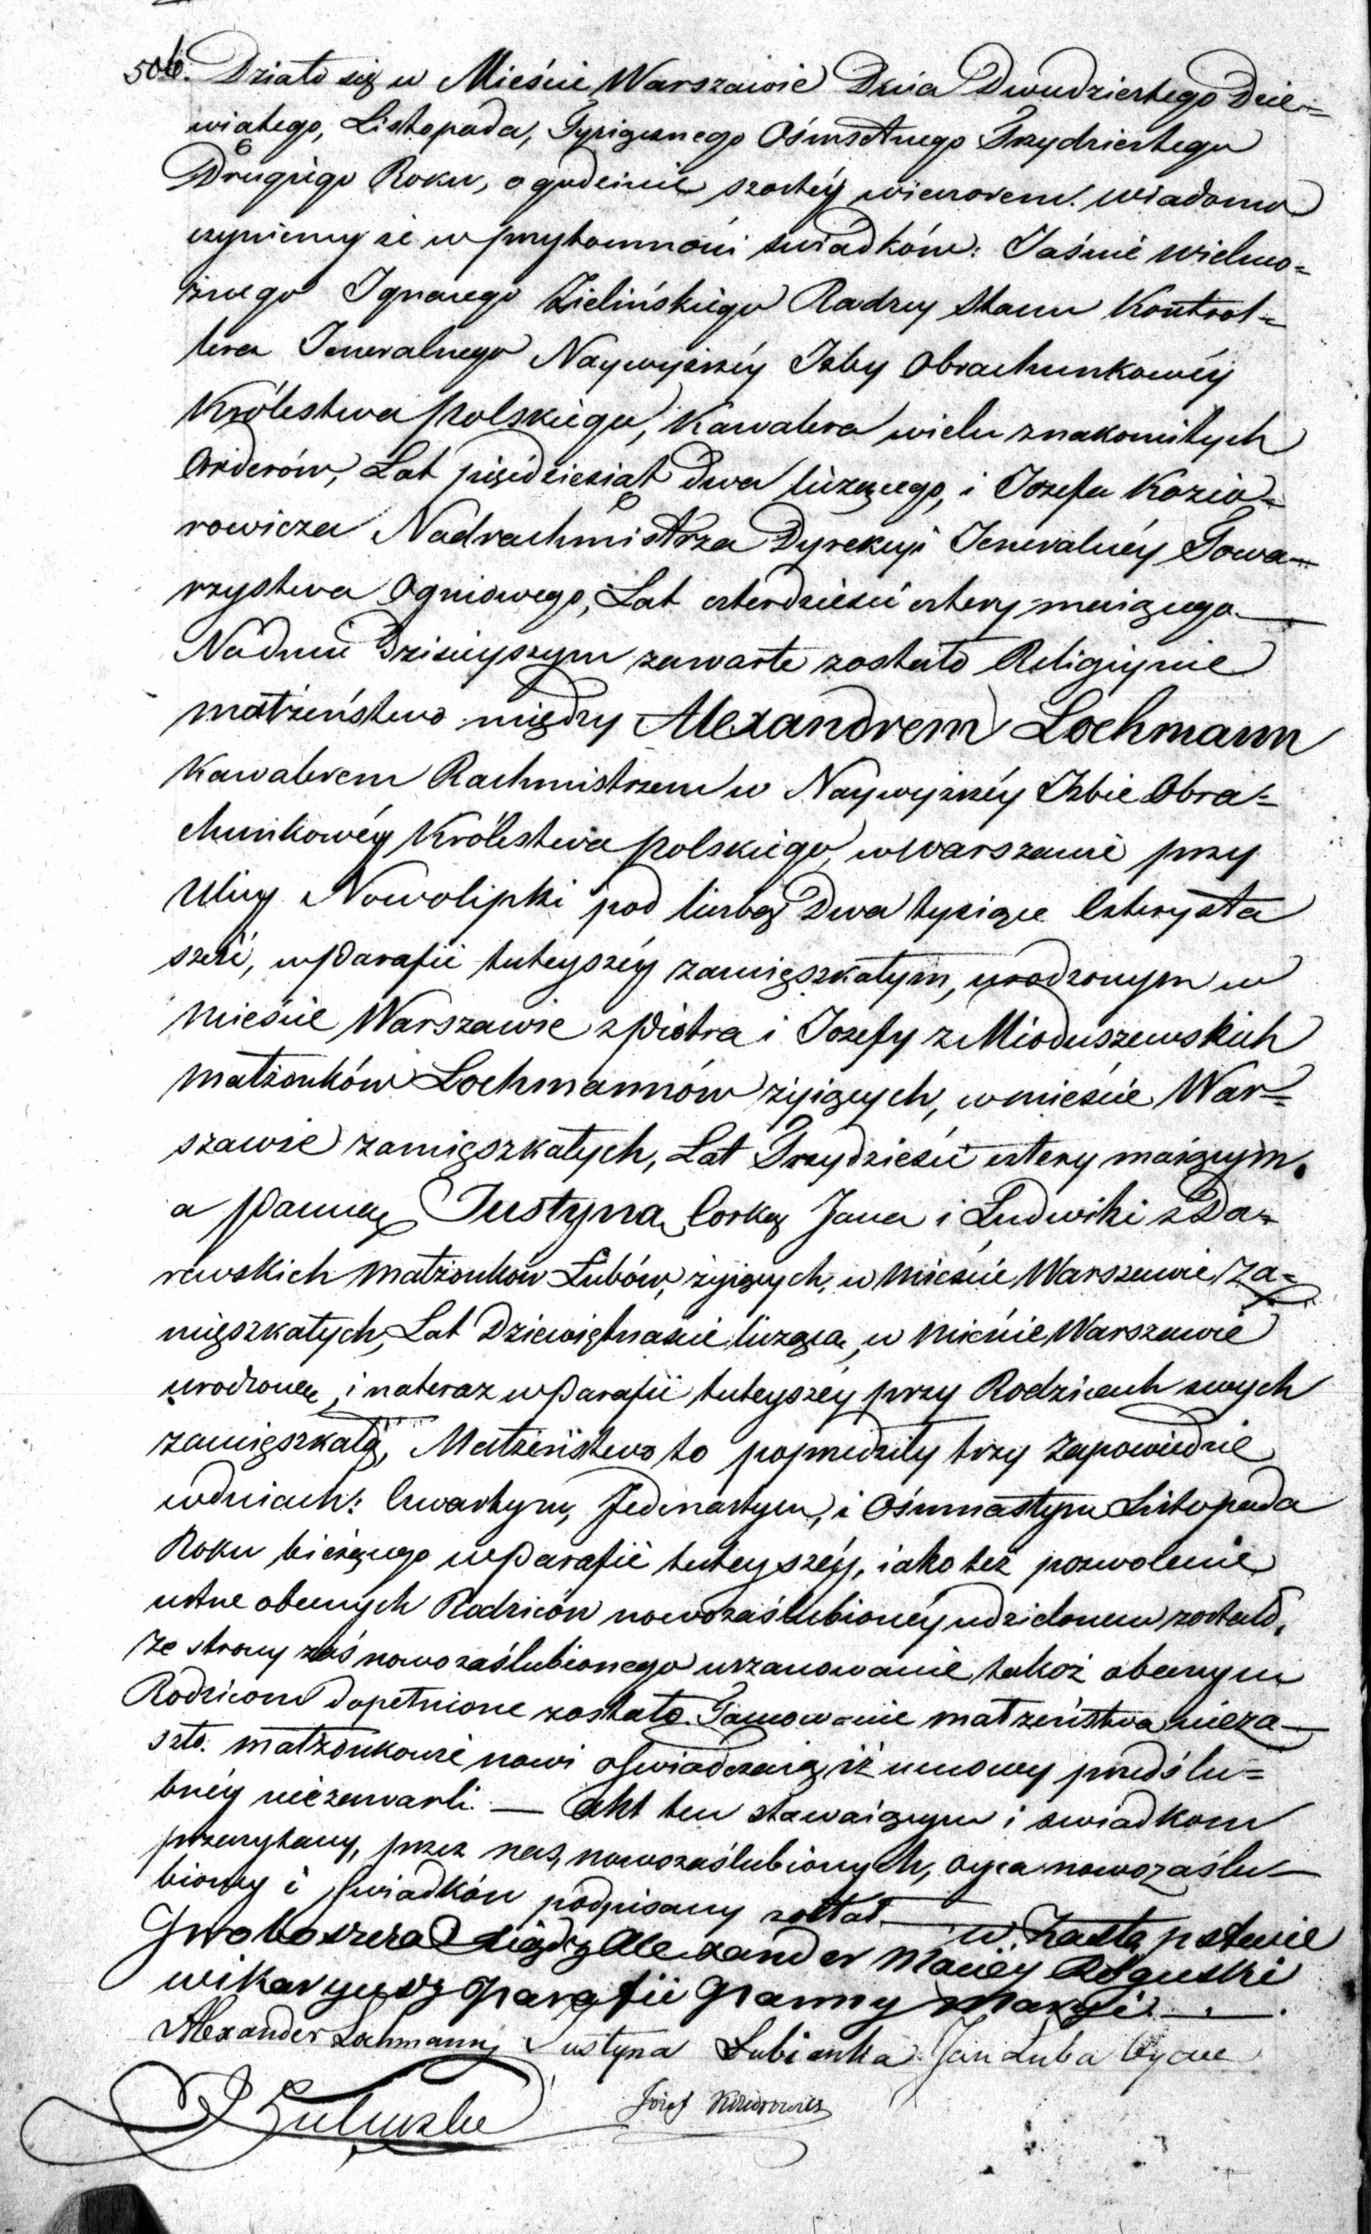 506. Działo się w Mieście Warszawie Dnia Dwudziestego Dzie=
wiątego, Listopada, Tysiącznego Ośmsetnego Trzydziestego
Drugiego Roku, o godzinie szóstéy wieczorem. Wiadomo
czyniemy że w przytomności świadków: Jaśnie Wielmo=
żnego Ignacego Zielińskiego Radzcy Stanu Kontrol=
lera Jeneralnego Naywyższéy Izby Obrachunkowéy
Królestwa Polskiego, Kawalera wielu znakomitych
Orderów, Lat pięćdziesiąt dwa liczącego, i Jozefa Kozio=
rowicza Nadrachmistrza Dyrekcyi Jeneralnéy Towa=
rzystwa Ogniowego, Lat czterdzieści cztery maiącego
Na dniu Dzisieyszym zawarte zostało Religiynie
małżeństwo między Alexandrem Lochmann
Kawalerem Rachmistrzem w Naywyższéy Izbie Obra=
chunkowéy Królestwa Polskiego, w Warszawie przy
Ulicy Nowolipki pod liczbą Dwa tysiące Czterysta
sześć, w Parafii tuteyszéy zamięszkałym, urodzonym w
Mieście Warszawie z Piotra i Jozefy z Mioduszewskich
Małżonków Lochmannów żyiących, w mieście War=
szawie zamięszkałych, Lat Trzydzieści cztery maiącym.
a Panną Justyną Corką Jana i Ludwiki z Da=
rewskich Małżonkow Lubów, żyiących, w Mieście Warszawie Za=
mięszkałych, Lat Dziewiętnaście liczącą, w Mieście Warszawie
urodzoną, i nateraz w Parafii tuteyszéy przy Rodzicach swych
zamięszkałą, Małżeństwo to poprzedziły trzy Zapowiedzie
w dniach: Czwartym, Jedenastym, i Ośmnastym Listopada
Roku bieżącego w Parafii tuteyszéy, iako też pozwolenie
ustne obecnych Rodziców nowozaślubionéy udzielonem zostało,
ze strony zaś nowozaślubionego uszanowanie takoż obecnym
Rodzicom dopełnione zostało. Tamowanie małżeństwa nieza=
szło. Małżonkowie nowi oświadczaią iż umowy przedślu=
bnéy niezawarli. — Akt ten stawaiącym i świadkom
przeczytany, przez nas, nowozaślubionych, oyca nowozaślu=
bionéy i świadków podpisany został. — w Zastępstwie
Proboszcza Xiądz Alexander Maciéy Roguski
wikaryusz Parafii Panny Maryi.
Alexander Lochmann Justyna Lubianka Jan Luba Oyciec
Józef Koziorowicz